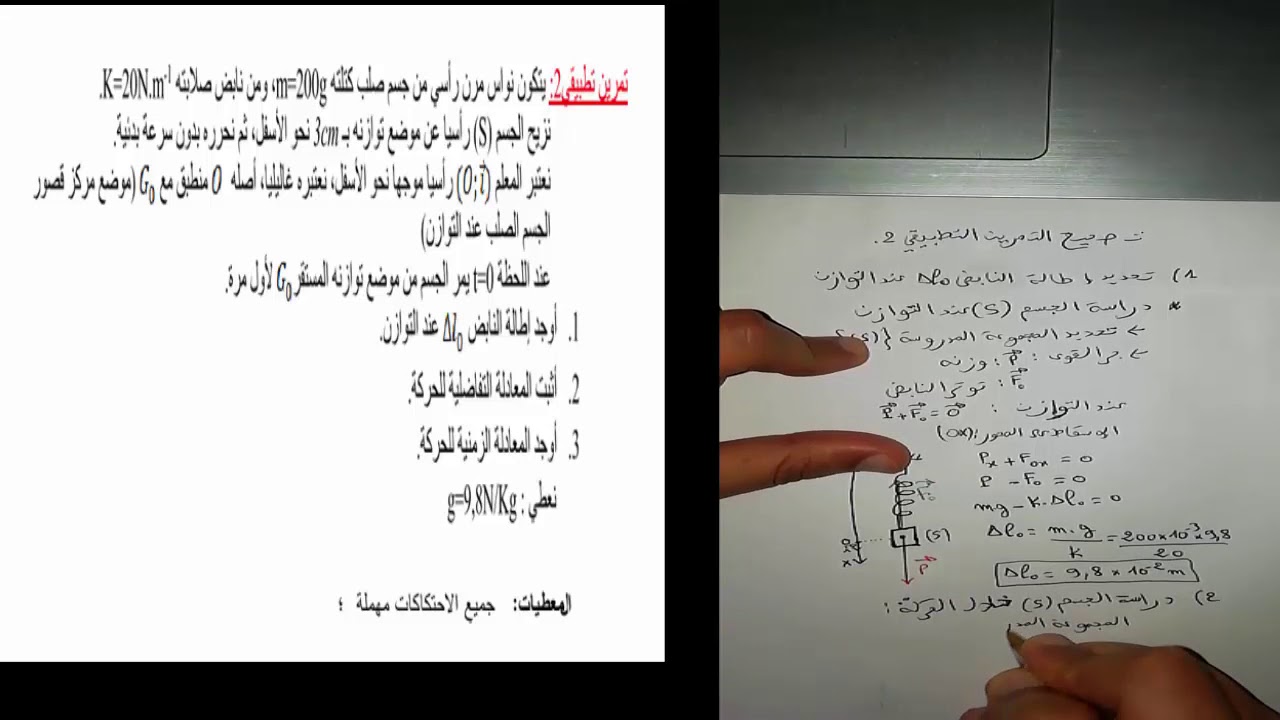 تمرين تطبيقي2: يتكون نواس مرن رأسي من جسم صلب كتلته m=200g، ومن نابض صلابته K=20N.m⁻¹.
نزيح الجسم (S) رأسيا عن موضع توازنه بـ 3cm نحو الأسفل، ثم نحرره بدون سرعة بدئية.
نعتبر المعلم (O;i⃗) رأسيا موجها نحو الأسفل، نعتبره غاليليا، أصله O منطبق مع G₀ (موضع مركز قصور
الجسم الصلب عند التوازن)
عند اللحظة t=0 يمر الجسم من موضع توازنه المستقر G₀ لأول مرة.
1. أوجد إطالة النابض Δl₀ عند التوازن.
2. أثبت المعادلة التفاضلية للحركة.
3. أوجد المعادلة الزمنية للحركة.
نعطي : g=9,8N/Kg
المعطيات: جميع الاحتكاكات مهملة ؛
تصحيح التمرين التطبيقي 2.
1) تحديد إطالة النابض Δl₀ عند التوازن
* دراسة الجسم (S) عند التوازن
← تحديد المجموعة المدروسة {(S)
← جرد القوى : P⃗ : وزنه
F⃗₀ : توتر النابض
عند التوازن : P⃗+F⃗₀=0⃗
الإسقاط على المحور (Ox):
Pₓ + F₀ₓ = 0
P - F₀ = 0
mg - K.Δl₀ = 0
Δl₀ = m.g/K = 200×10⁻³×9,8/20
Δl₀ = 9,8 × 10⁻² m
F⃗₀
(S)
P⃗
x
2) دراسة الجسم (S) خلال الحركة :
المجموعة المد